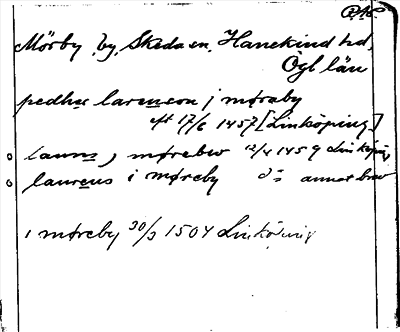 Mörby, by, Skeda sn, Hanekind hd,
Ögl län
pedher larenson j møraby
eft 17/6 1457 [Linköping]
o laurns j mørebw 12/4 1459 Linköping
o laurens i møreby d:s annat brev
i møreby 30/3 1504 Linköping